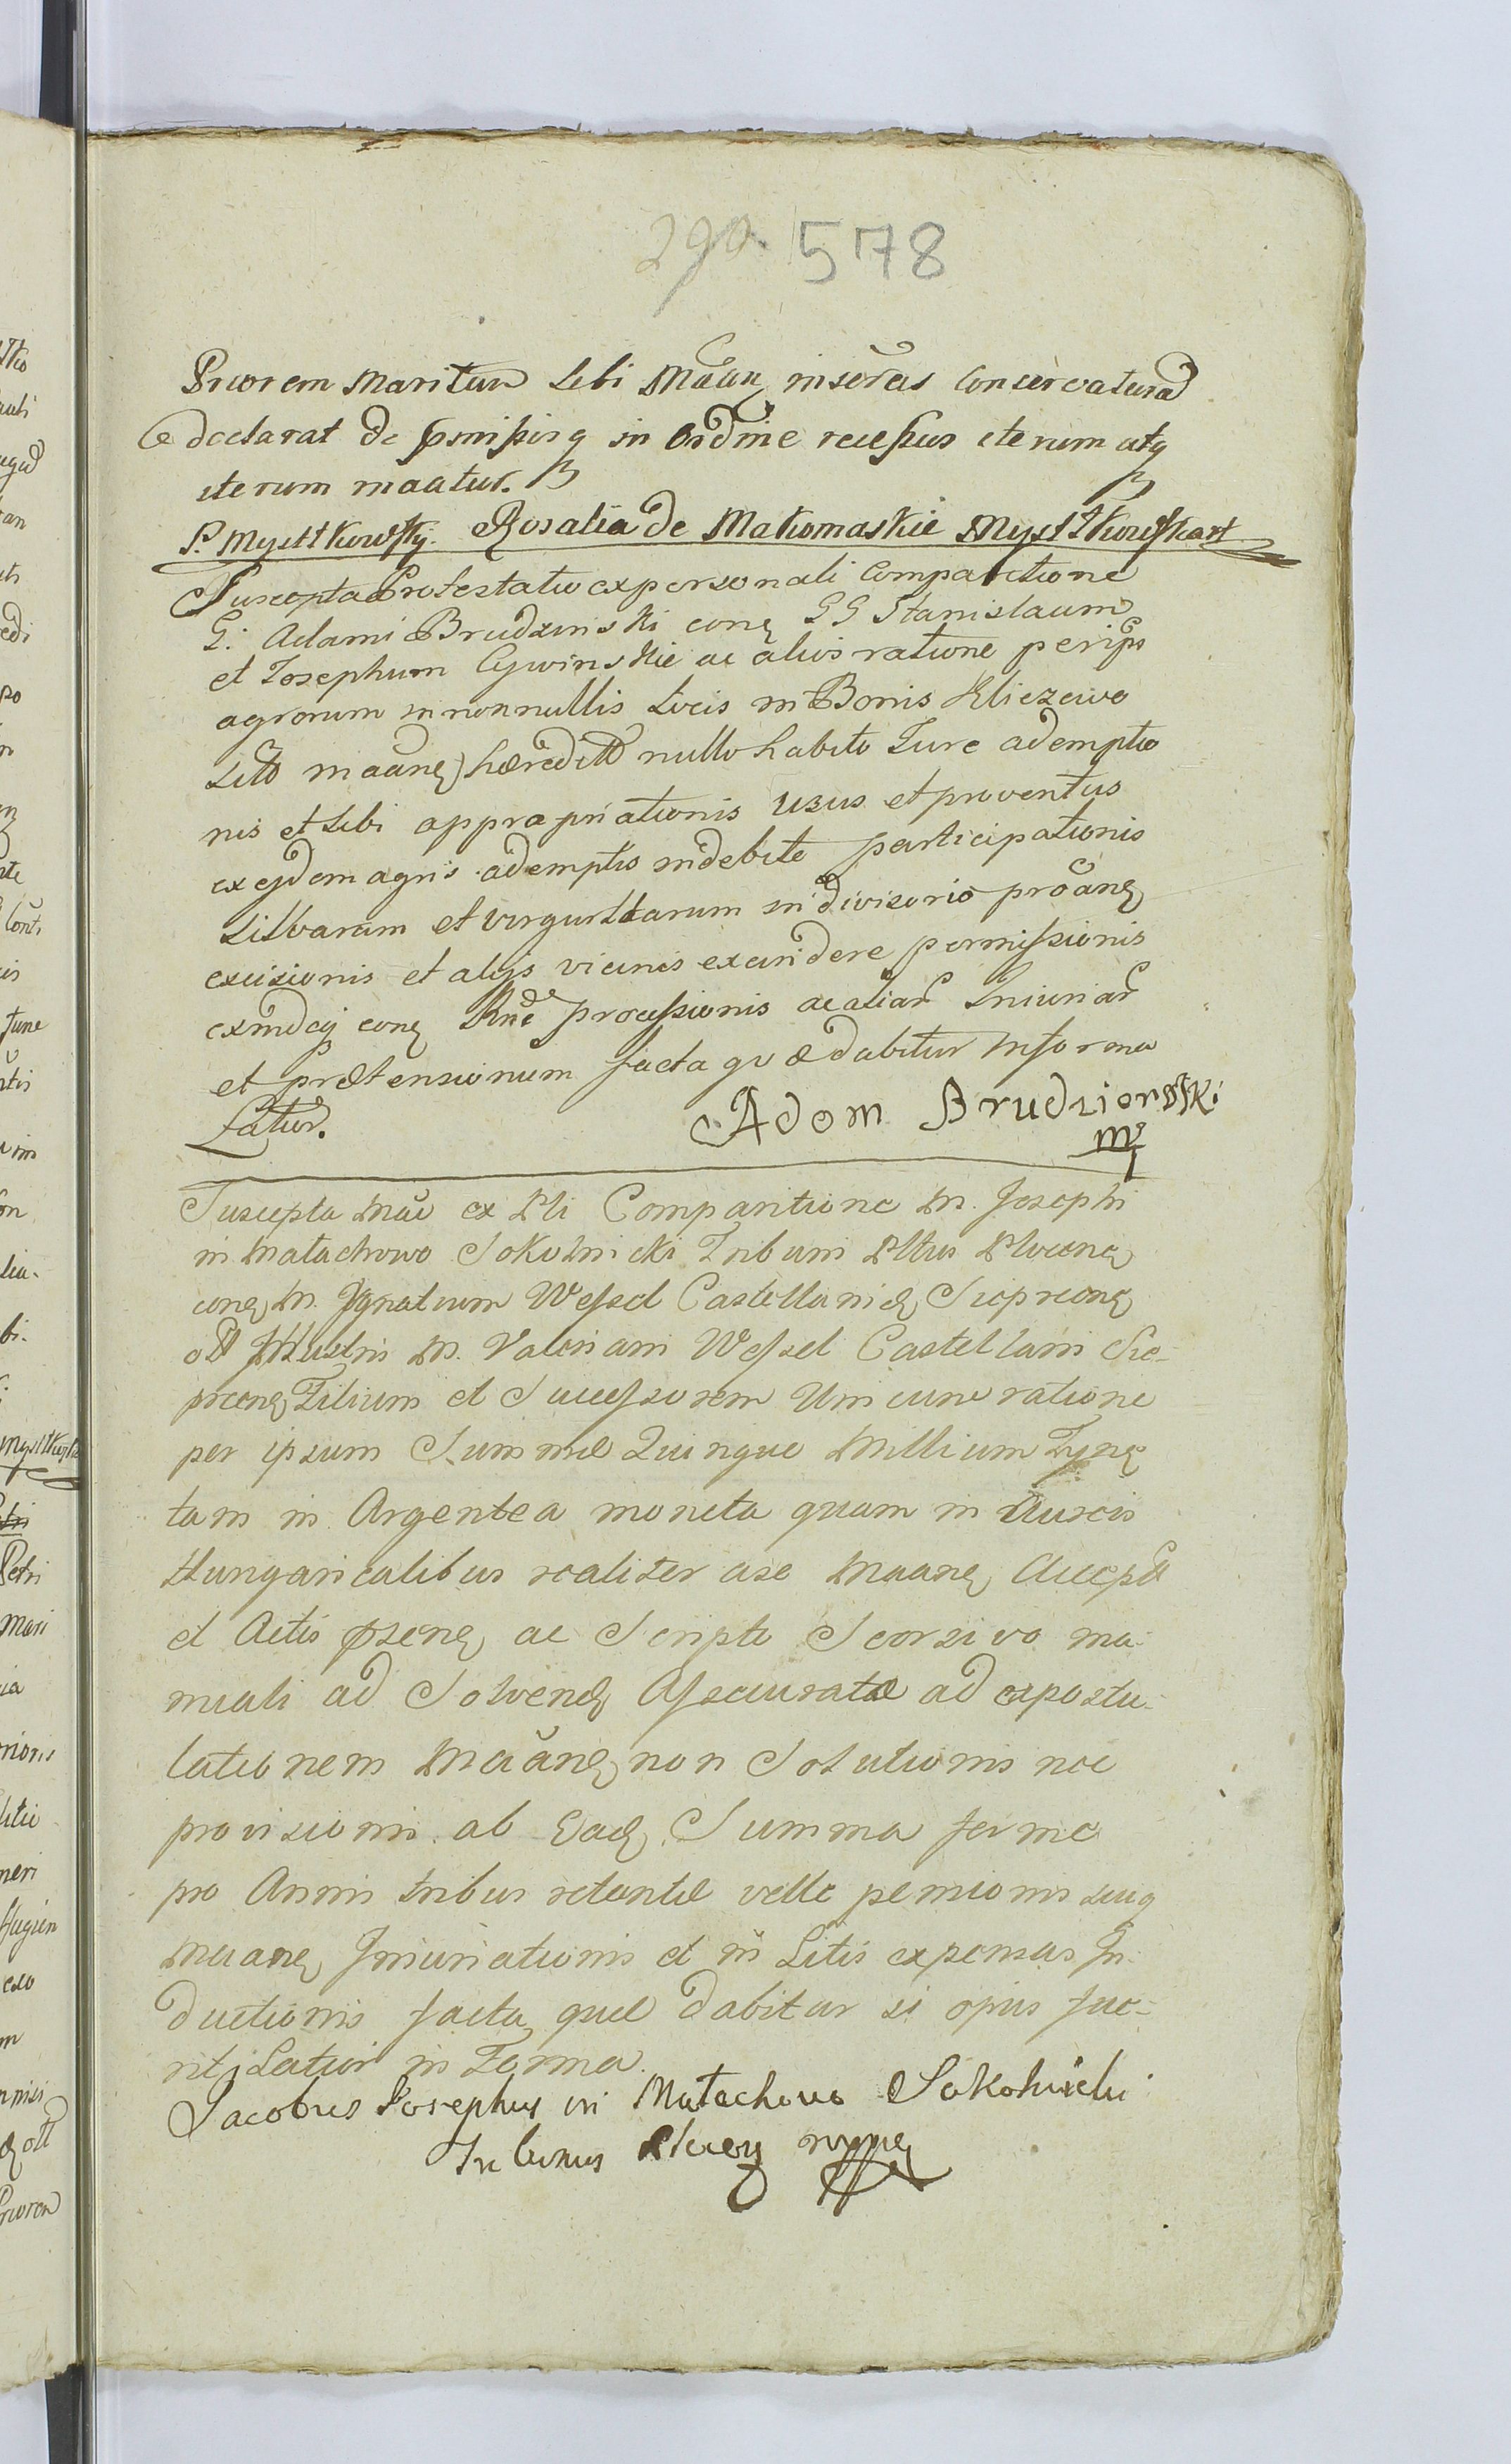 290. 578
Priorem Maritum sibi Maan inseras conservaturad
e declarat de pmissisq in ordine recessus iterum atq
iterum maatur.
P. Mysttkowsky. Rosalia de Makomaskie Mysttkowska
Suscepta Protestatio ex personali Comparitione
G. Adami Brudzinski conq GG Stanislaum
et Josephum Cywinskie ac alios ratione per ipso
agrorum in nonnullis Locis in Bonis Kliczewo
sitt maanq hæreditt nullo habito Jure ademptio
nis et sibi appropriationis usus et proventus
ex ejdem agris ademptis indebite participationis
silvarum et virgultarum indivisorio proanq
excisionis et alijs vicinis excindere permissionis
exindeq conq Rnde processionis ac aliar Iniuriar
et prætensionum facta quæ dabitur in forma
Latior.
Adom Brudzionski
mp
Suscepta Mać ex Pli Comparitione M. Josephi
in Małachowo Sokolnicki Tribuni Pttus Plocenq
conq M. Ignatium Wessel Castellanidę Sieprcenq
ott Illustris M. Valeriani Wessel Castellani Sie-
prcenq Filium et Successorem Unicum ratione
per ipsum Summæ Quinque Millium Tynę
tam in Argentea moneta quam in Aureis
Hungaricalibus realiter a se Maanę Accept
et Actis psenę ac Scripto Scorsivo ma-
nuali ad Solvendę Assecuratæ ad expostu-
lationem Maanę non Solutionis nec
provisionis ab Eadę Summa ferme
pro Annis tribus retentæ velle pernionis suiq
Maanę Iniuriationis et in Litis expensas In-
ductionis facta quæ dabitur si opus fue-
rit Latior in Forma.
Jacobus Josephus in Małachowo Sokolnicki
Tribunus Plocen mppę